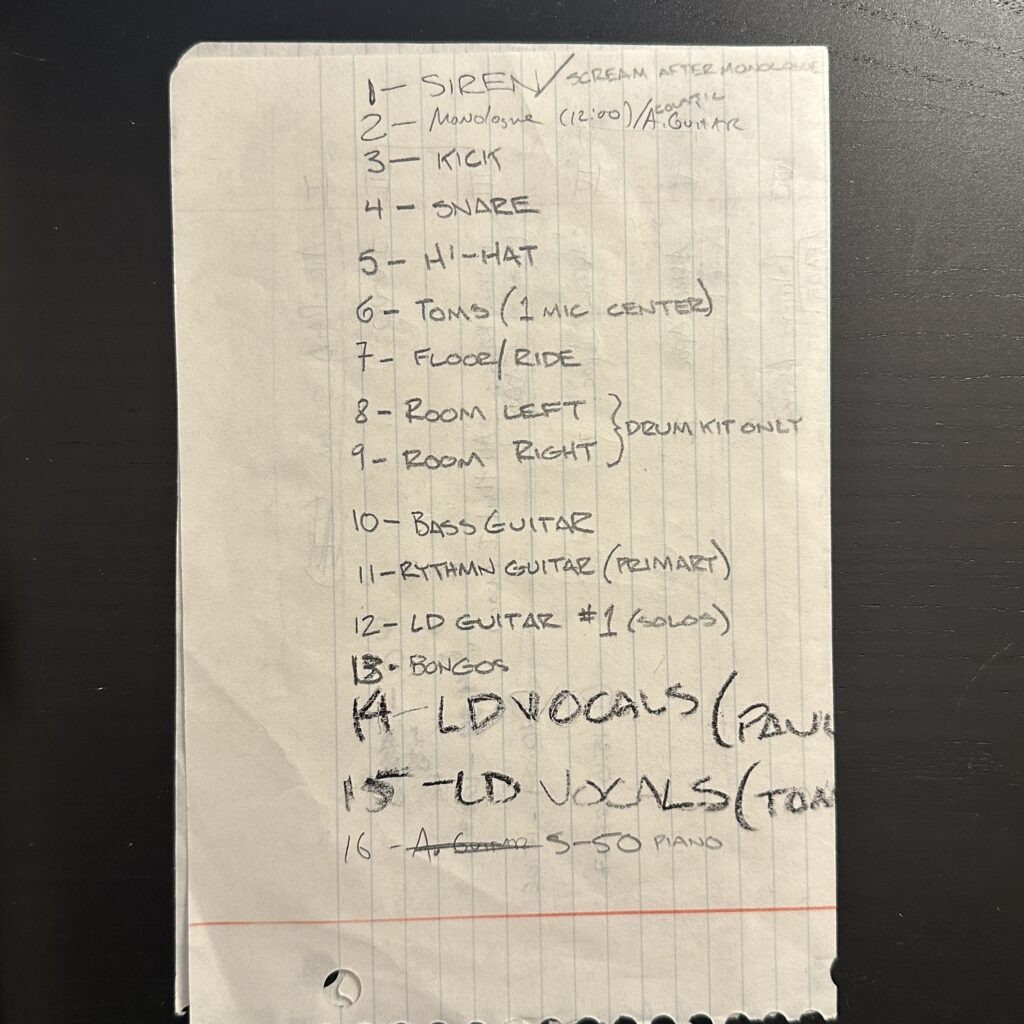 1 - SIREN / SCREAM AFTER MONOLOGUE
2 - Monologue (12:00) / ACOUSTIC A. GUITAR
3 - KICK
4 - SNARE
5 - HI-HAT
6 - TOMS (1 MIC CENTER)
7 - FLOOR/RIDE
8 - ROOM LEFT } DRUM KIT ONLY
9 - ROOM RIGHT
10 - BASS GUITAR
11 - RYTHMN GUITAR (PRIMARY)
12 - LD GUITAR #1 (SOLOS)
13 - BONGOS
14 - LD VOCALS (PAUL
15 - LD VOCALS (TOM
16 - A. GUITAR S-50 PIANO